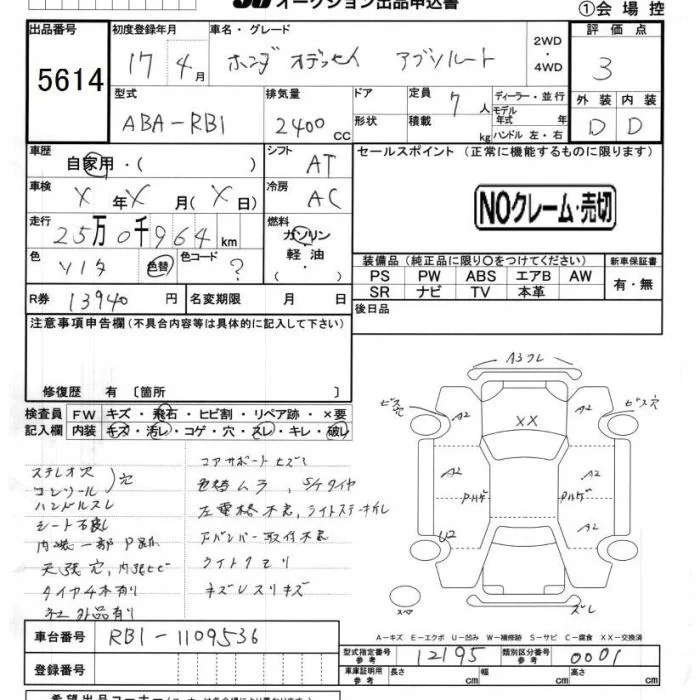 オークション出品申込書
①会場控
出品番号 初度登録年月 車名・グレード 評価点
5614 17年 4月 ホンダ オデッセイ アブソルート 2WD ・ 4WD 3
型式 排気量 ドア 定員 7人 ディーラー・並行 外装 内装
ABA-RB1 2400cc 形状 積載 kg モデル年式 年 ハンドル 左・右 D D
車歴 自家用・( ) シフト AT セールスポイント (正常に機能するものに限ります)
車検 X年X月(X日) 冷房 AC
NOクレーム・売切
走行 25万0千964km 燃料 ガソリン・軽油・( )
色 ソノタ 色替 色コード ?
装備品(純正品に限り○をつけてください) 新車保証書
PS PW ABS エアB AW 有・無
SR ナビ TV 本革
R券 13940円 名変期限 月 日
後日品
注意事項申告欄(不具合内容等は具体的に記入して下さい)
修復歴 有〔箇所 〕
検査員記入欄 FW キズ・飛石・ヒビ割・リペア跡・×要
内装 キズ・汚レ・コゲ・穴・スレ・キレ・破レ
ステレオ穴
コンソール穴
ハンドルスレ
シート不良
天張穴
タイヤ4本有り
社外品有り
コアサポート
色替ムラ
ライトクモリ
A3 フレ
ビス穴
A2
A2
ビス穴
XX
A2
A2
U2
A2
スペア
ズレ
A-キズ E-エクボ U-凹み W-補修跡 S-サビ C-腐食 XX-交換済
車台番号 RB1-1109536
登録番号
型式指定番号 参考 12195 類別区分番号 参考 0001
車庫証明用 参考 長さ cm 幅 cm 高さ cm